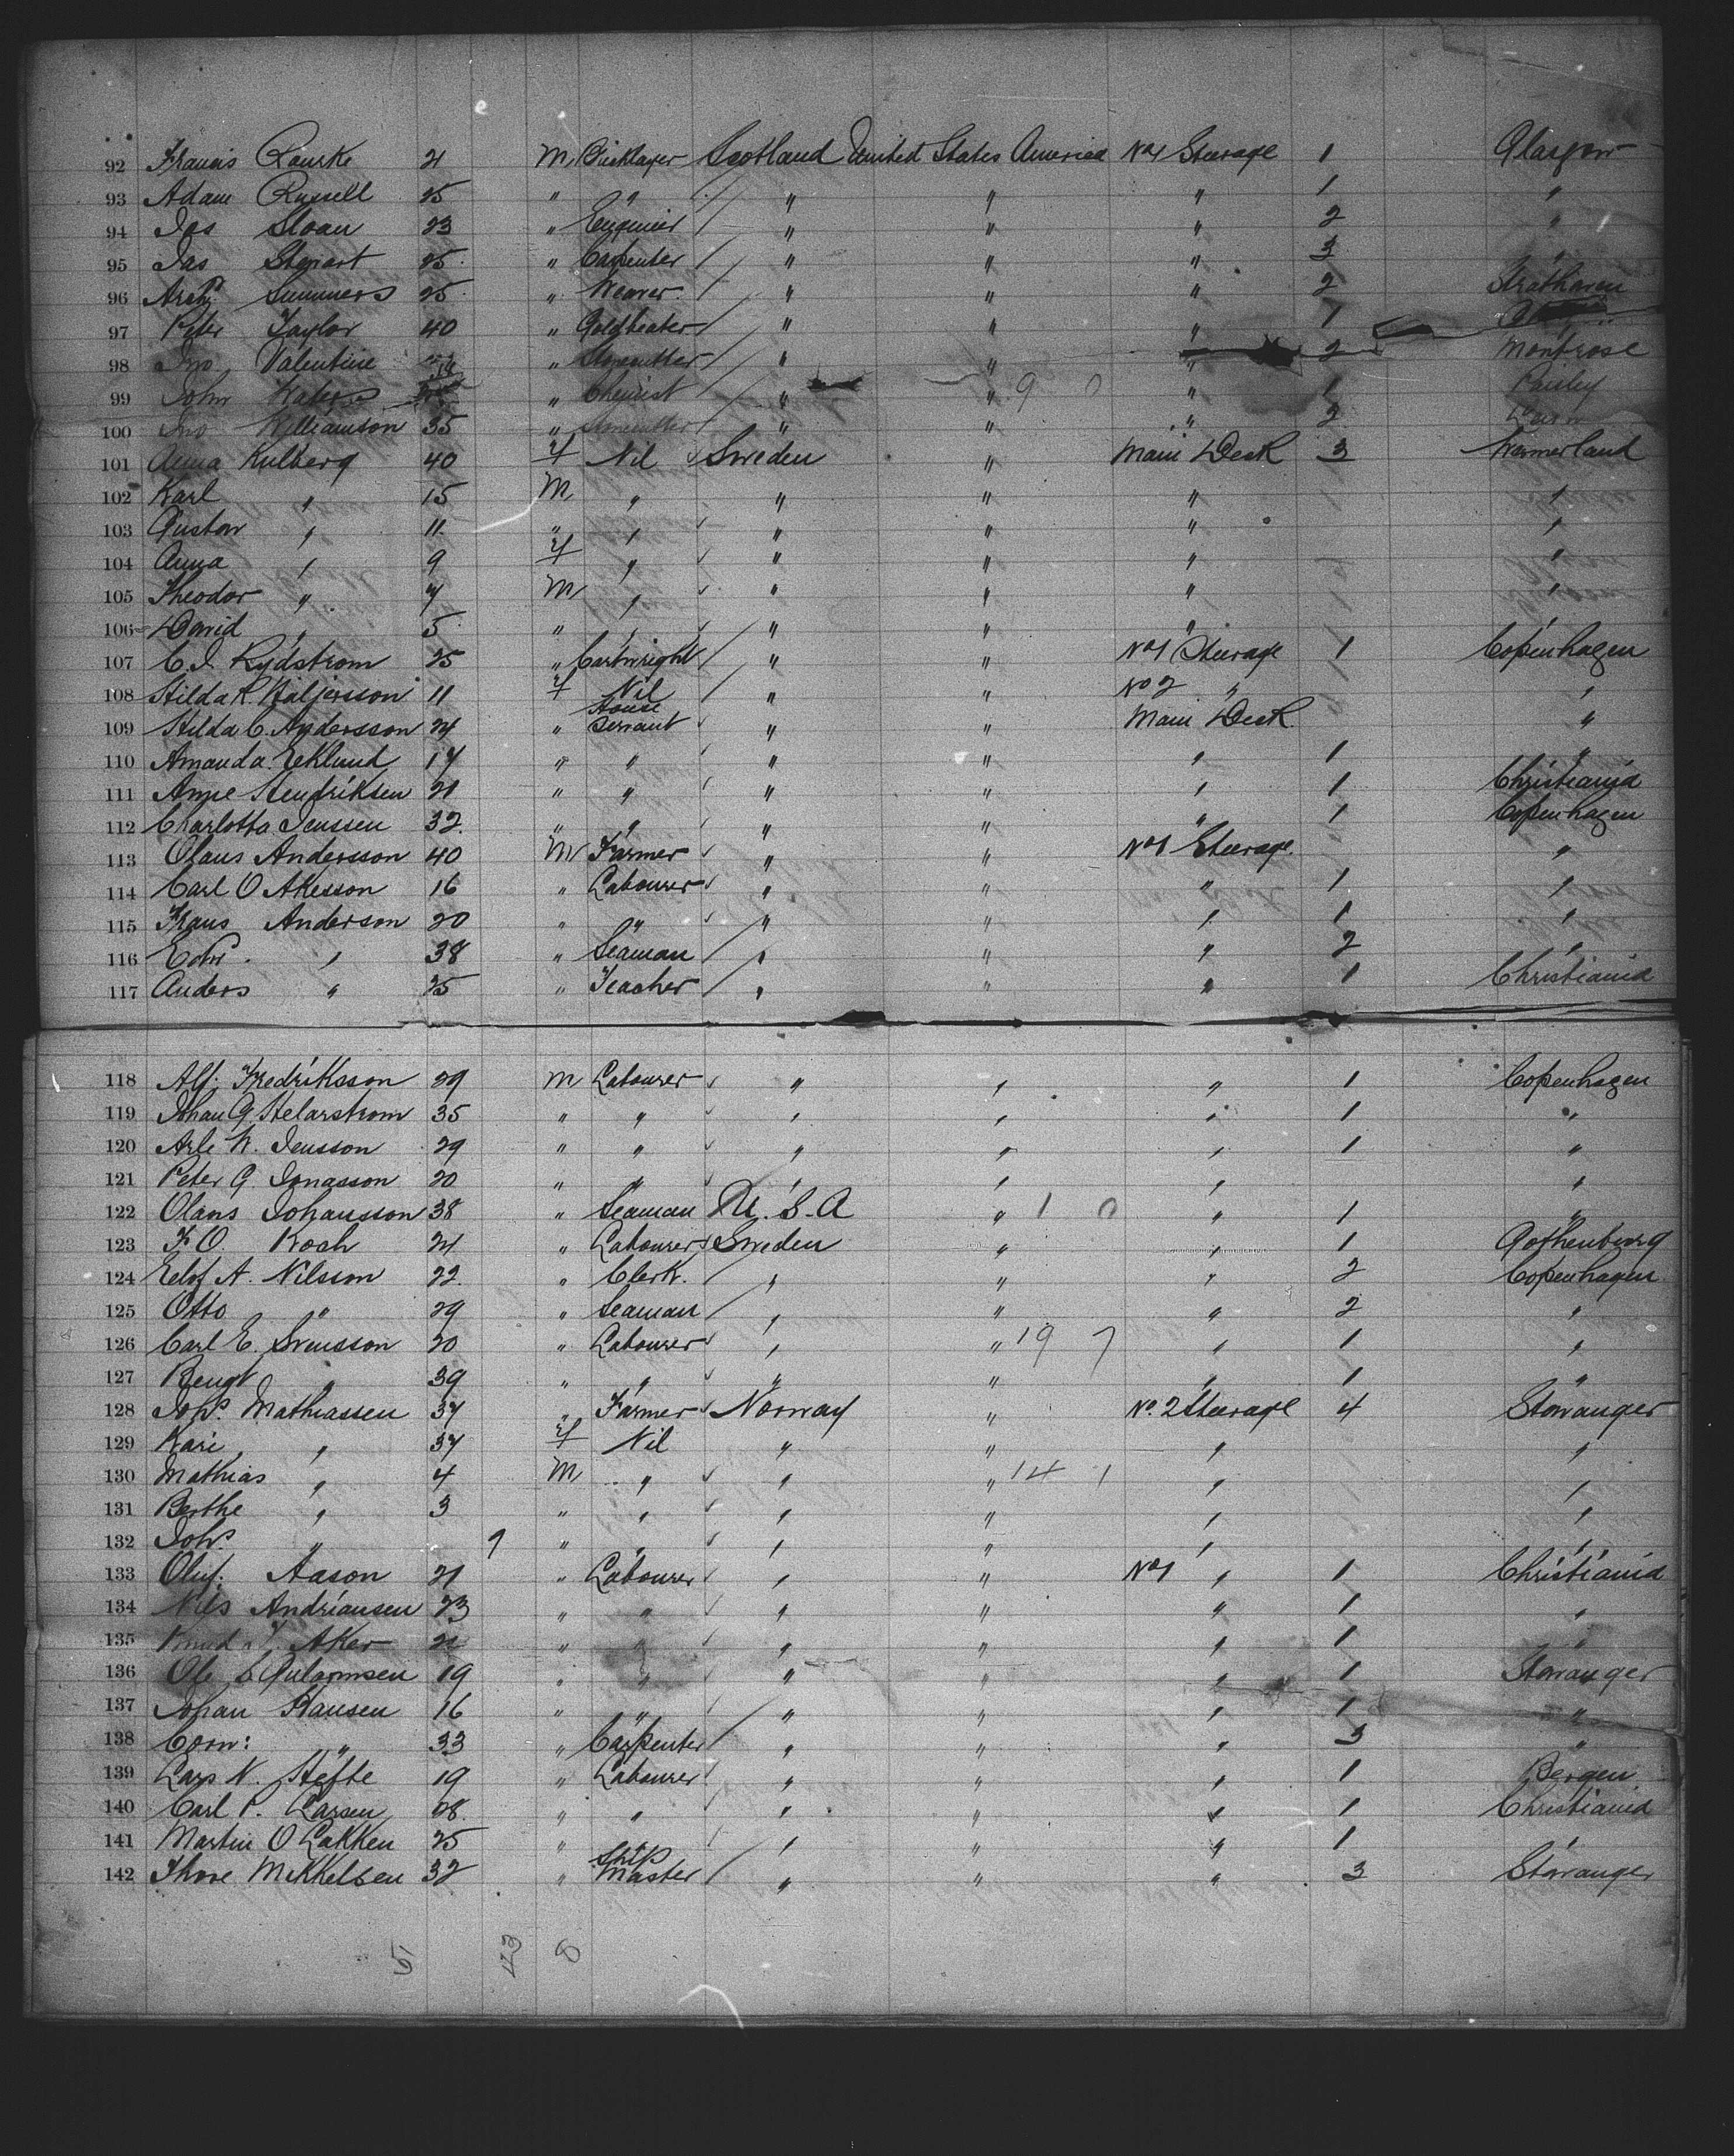 92 Francis Rourke 21 M Bricklayer Scotland United States America No 1 Steerage 1 Glasgow
93 Adam Russell 25 " " " " " 1 "
94 Jas Sloan 23 " Engineer " " " 2 "
95 Jas Stewart 25 " Carpenter " " " 3 "
96 Archd Summers 25 " Weaver " " " 2 Strathaven
97 Peter Taylor 40 " Goldbeater " " " 1
98 Jno Valentine " Stonecutter " " " 2 Montrose
99 John " Chemist " " 9 0 " 1 Paisley
100 Jno Williamson 35 " Stonecutter " " " 2
101 Anna Kulberg 40 F Nil Sweden " Main Deck 3 Wermerland
102 Karl " 15 M " " " " "
103 Gustav " 11 " " " " " "
104 Anna " 9 F " " " " "
105 Theodor " 7 M " " " " "
106 David " 5 " " " " " "
107 C. J. Rydstrom 25 " Cartwright " " No 1 Steerage 1 Copenhagen
108 Hilda K. 11 F Nil " " No 2 " "
109 Hilda C. Andersson 24 " House Servant " " Main Deck "
110 Amanda Eklund 17 " " " " " 1 "
111 Anne Hendriksen 21 " " " " " 1 Christiania
112 Charlotta Jenssen 32 " " " " " 1 Copenhagen
113 Olaus Andersson 40 M Farmer " " No 1 Steerage "
114 Carl O Akesson 16 " Labourer " " " 1 "
115 Frans Anderson 20 " " " " " 1 "
116 Edw. " 38 " Seaman " " " 2 "
117 Anders " 25 " Teacher " " " 1 Christiania
118 Alf. Fredriksson 29 M Labourer " " " 1 Copenhagen
119 Johan G. Helarstrom 35 " " " " " 1 "
120 Arle W. Jensson 29 " " " " " 1 "
121 Peter G. Jonasson 20 " " " " " "
122 Olans Johansson 38 " Seaman U.S.A " 1 0 " 1 "
123 F O. Koch 24 " Labourer Sweden " " 1 Gothenburg
124 Elof A. Nilsson 22 " Clerk " " " 2 Copenhagen
125 Otto " 29 " Seaman " " " 2 "
126 Carl E. Svensson 20 " Labourer " " 19 7 " 1 "
127 Bengt " 39 " " " " " 1 "
128 Johs. Mathiassen 37 " Farmer Norway " No. 2 Steerage 4 Stavanger
129 Kari " 37 F Nil " " " "
130 Mathias " 4 M " " " 14 1 " "
131 Berthe " 3 " " " " " "
132 Johs. " 9 " " " " " "
133 Oluf. Aason 21 " Labourer " " No 1 " 1 Christiania
134 Nils Andriansen 23 " " " " " 1 "
135 Knud Aker " " " " " 1 "
136 Ole 19 " " " " " 1 Stavanger
137 Johan Hansen 16 " " " " " 1 "
138 Corn: " 33 " Carpenter " " " 3 "
139 Lars N. Hefte 19 " Labourer " " " 1 Bergen
140 Carl P. Larsen 28 " " " " " 1 Christiania
141 Martin O Lakken 25 " " " " " 1 "
142 Thore Mikkelsen 32 " Ship Master " " " 3 Stavanger
51 43 8